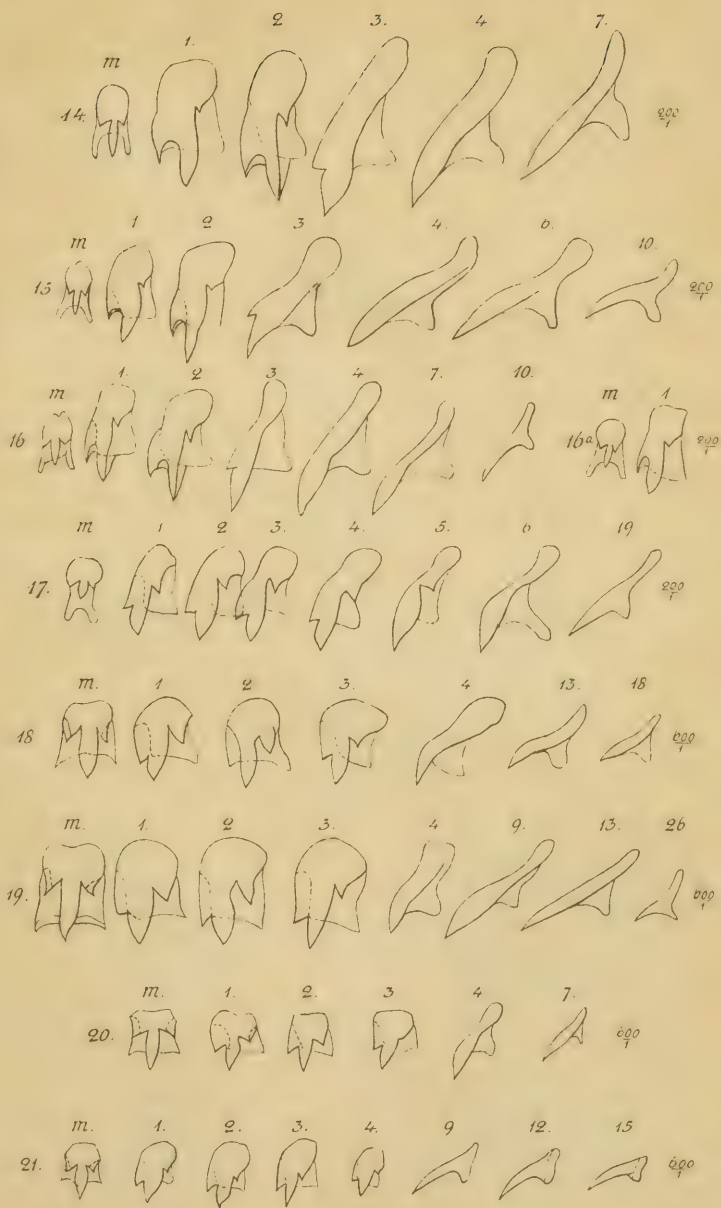 m 1. 2 3. 4 7.
14. 200/1
m 1 2 3 4. 6. 10.
15 200/1
m 1. 2 3 4 7. 10. m 1
16 16a 200/1
m 1 2 3. 4. 5. 6 19
17. 200/1
m. 1 2 3. 4 13. 18
18 600/1
m. 1. 2 3. 4 9. 13. 26
19. 600/1
m. 1. 2. 3 4 7.
20. 600/1
m. 1. 2. 3. 4. 9 12. 15
21. 600/1